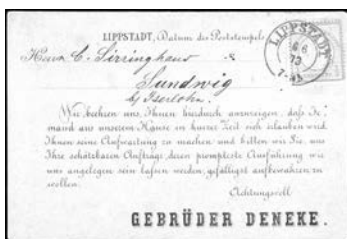 LIPPSTADT, Datum des Poststempels
LIPPSTADT
6 6
73
7-8V
Herrn C. Sirringhaus
Sundwig
b/ Iserlohn.
Wir beehren uns, Ihnen hierdurch anzuzeigen, daß Je-
mand aus unserem Hause in kurzer Zeit sich erlauben wird
Ihnen seine Aufwartung zu machen und bitten wir Sie, uns
Ihre schätzbaren Aufträge, deren prompteste Ausführung wir
uns angelegen sein laßen werden, gefälligst aufbewahren zu
wollen.
Achtungsvoll
GEBRÜDER DENEKE.